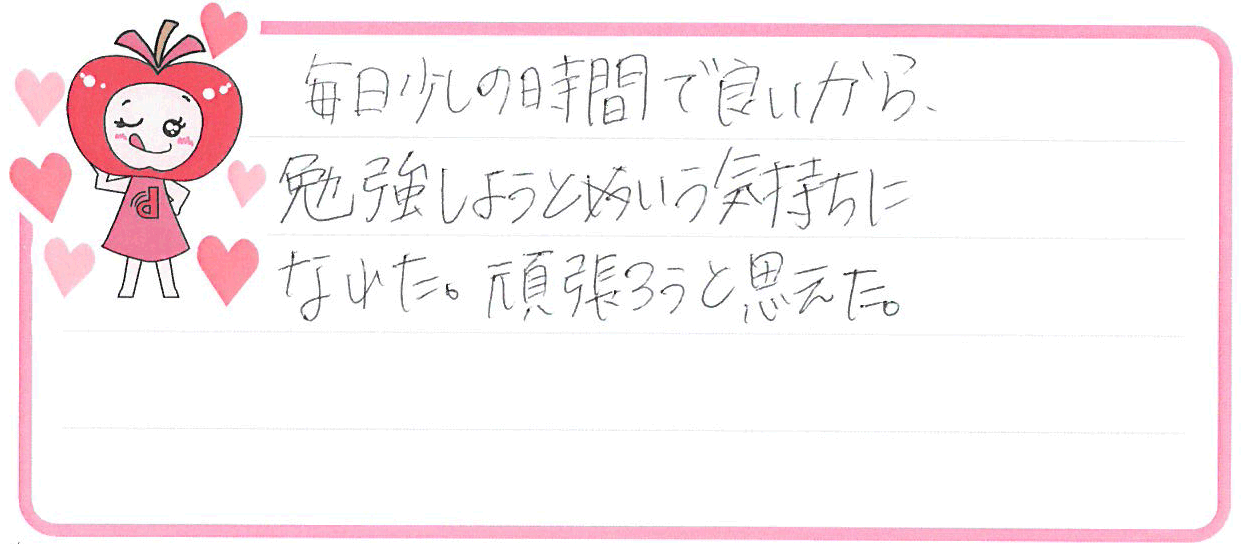 毎日少しの時間で良いから、
勉強しようという気持ちに
なれた。頑張ろうと思えた。